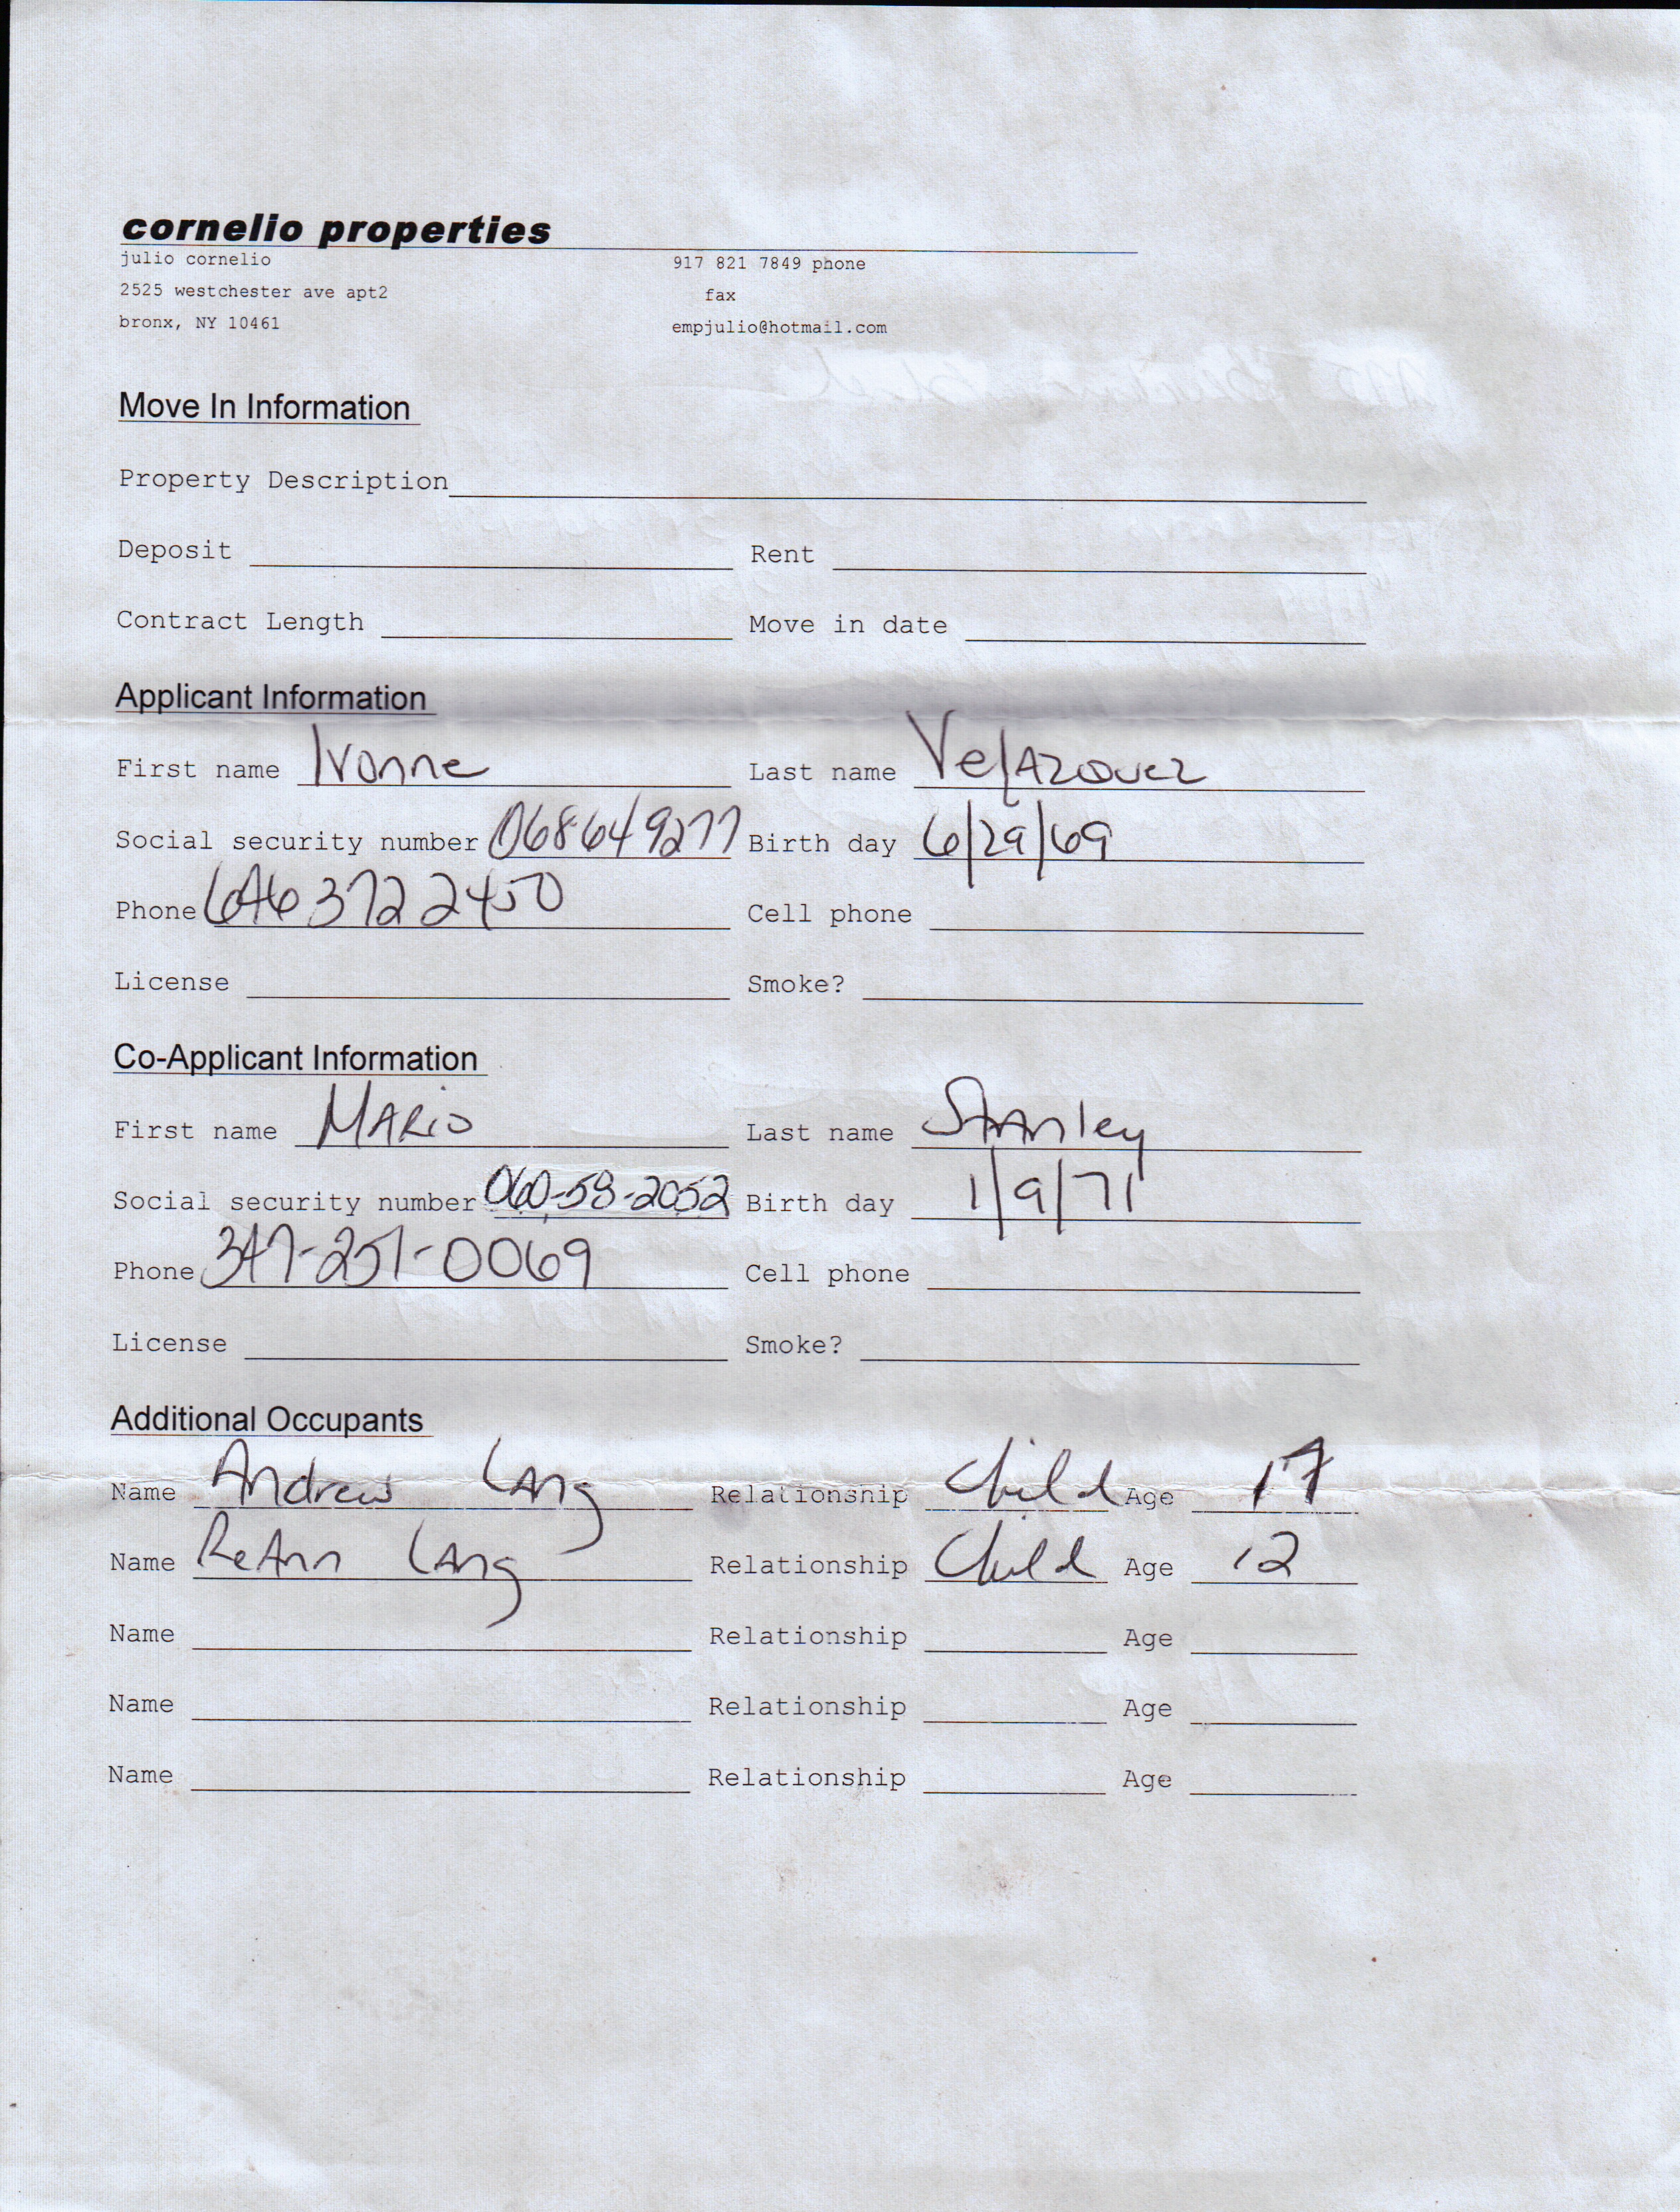 cornelio properties
julio cornelio 917 821 7849 phone
2525 westchester ave apt2 fax
bronx, NY 10461 empjulio@hotmail.com
Move In Information
Property Description
Deposit Rent
Contract Length Move in date
Applicant Information
First name Ivonne Last name Velazquez
Social security number 068649277 Birth day 6/29/69
Phone 646 372 2450 Cell phone
License Smoke?
Co-Applicant Information
First name Mario Last name Stanley
Social security number 060-58-2052 Birth day 1/9/71
Phone 347-251-0069 Cell phone
License Smoke?
Additional Occupants
Name Andrew Lang Relationship Child Age 17
Name ReAnn Lang Relationship Child Age 12
Name Relationship Age
Name Relationship Age
Name Relationship Age